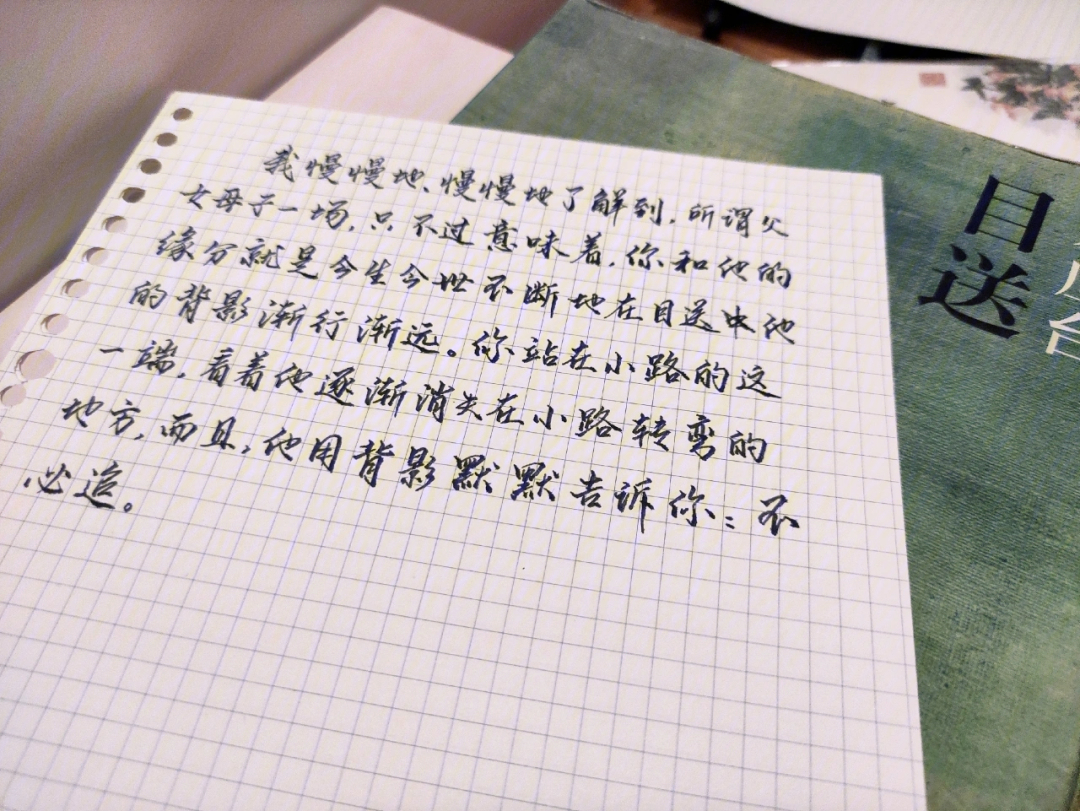 我慢慢地、慢慢地了解到，所谓父
女母子一场，只不过意味着，你和他的
缘分就是今生今世不断地在目送中他
的背影渐行渐远。你站在小路的这
一端，看着他逐渐消失在小路转弯的
地方，而且，他用背影默默告诉你：不
必追。
目送